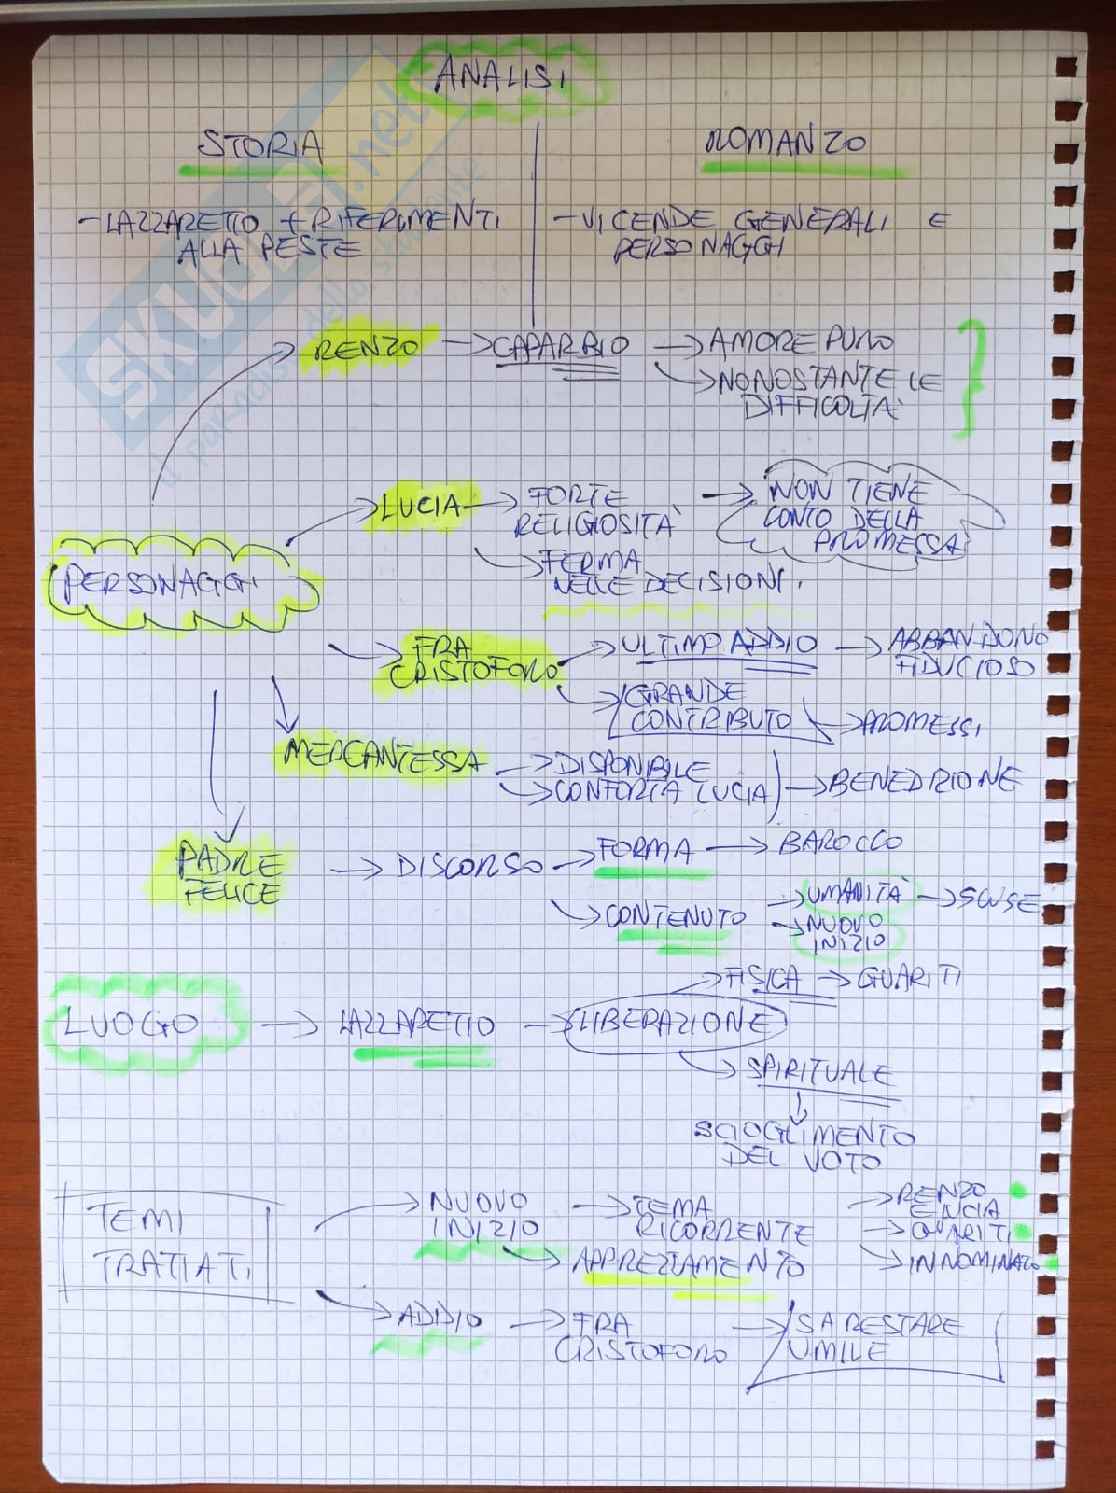 ANALISI
STORIA
ROMANZO
- LAZZARETTO + RIFERIMENTI
ALLA PESTE
- VICENDE GENERALI E
PERSONAGGI
RENZO → CAPARBIO → AMORE PURO
→ NONOSTANTE LE
DIFFICOLTÀ
LUCIA → FORTE
RELIGIOSITÀ
→ NON TIENE
CONTO DELLA
PROMESSA
→ FERMA
NELLE DECISIONI
PERSONAGGI
FRA
CRISTOFORO
→ ULTIMO ADDIO → ABBANDONO
FIDUCIOSO
→ GRANDE
CONTRIBUTO → PROMESSI
MERCANTESSA → DISPONIBILE
→ CONFORTA LUCIA → BENEDIZIONE
PADRE
FELICE
→ DISCORSO → FORMA → BAROCCO
→ CONTENUTO → UMANITÀ → SCUSE
→ NUOVO
INIZIO
LUOGO → LAZZARETTO → LIBERAZIONE
→ FISICA → GUARITI
→ SPIRITUALE
↓
SCIOGLIMENTO
DEL VOTO
TEMI
TRATTATI
→ NUOVO
INIZIO
→ TEMA
RICORRENTE
→ RENZO
E LUCIA
→ GUARITI
→ INNOMINATO
→ ADDIO → FRA
CRISTOFORO
→ SA RESTARE
UMILE
SKUOLA.net